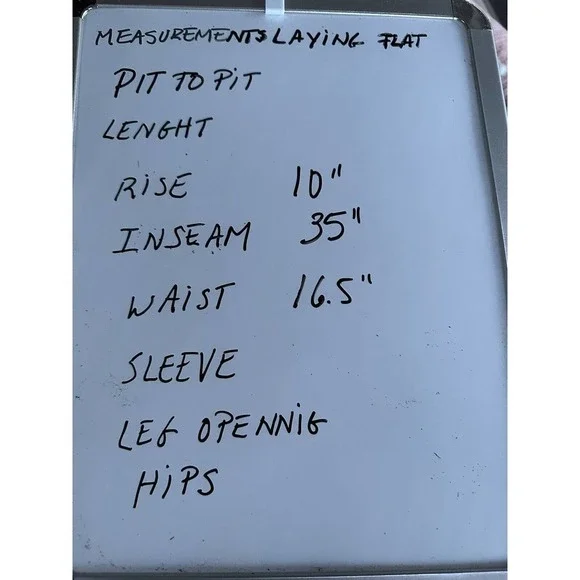 MEASUREMENTS LAYING FLAT
PIT TO PIT
LENGHT
RISE 10"
INSEAM 35"
WAIST 16.5"
SLEEVE
LEG OPENNIG
HIPS